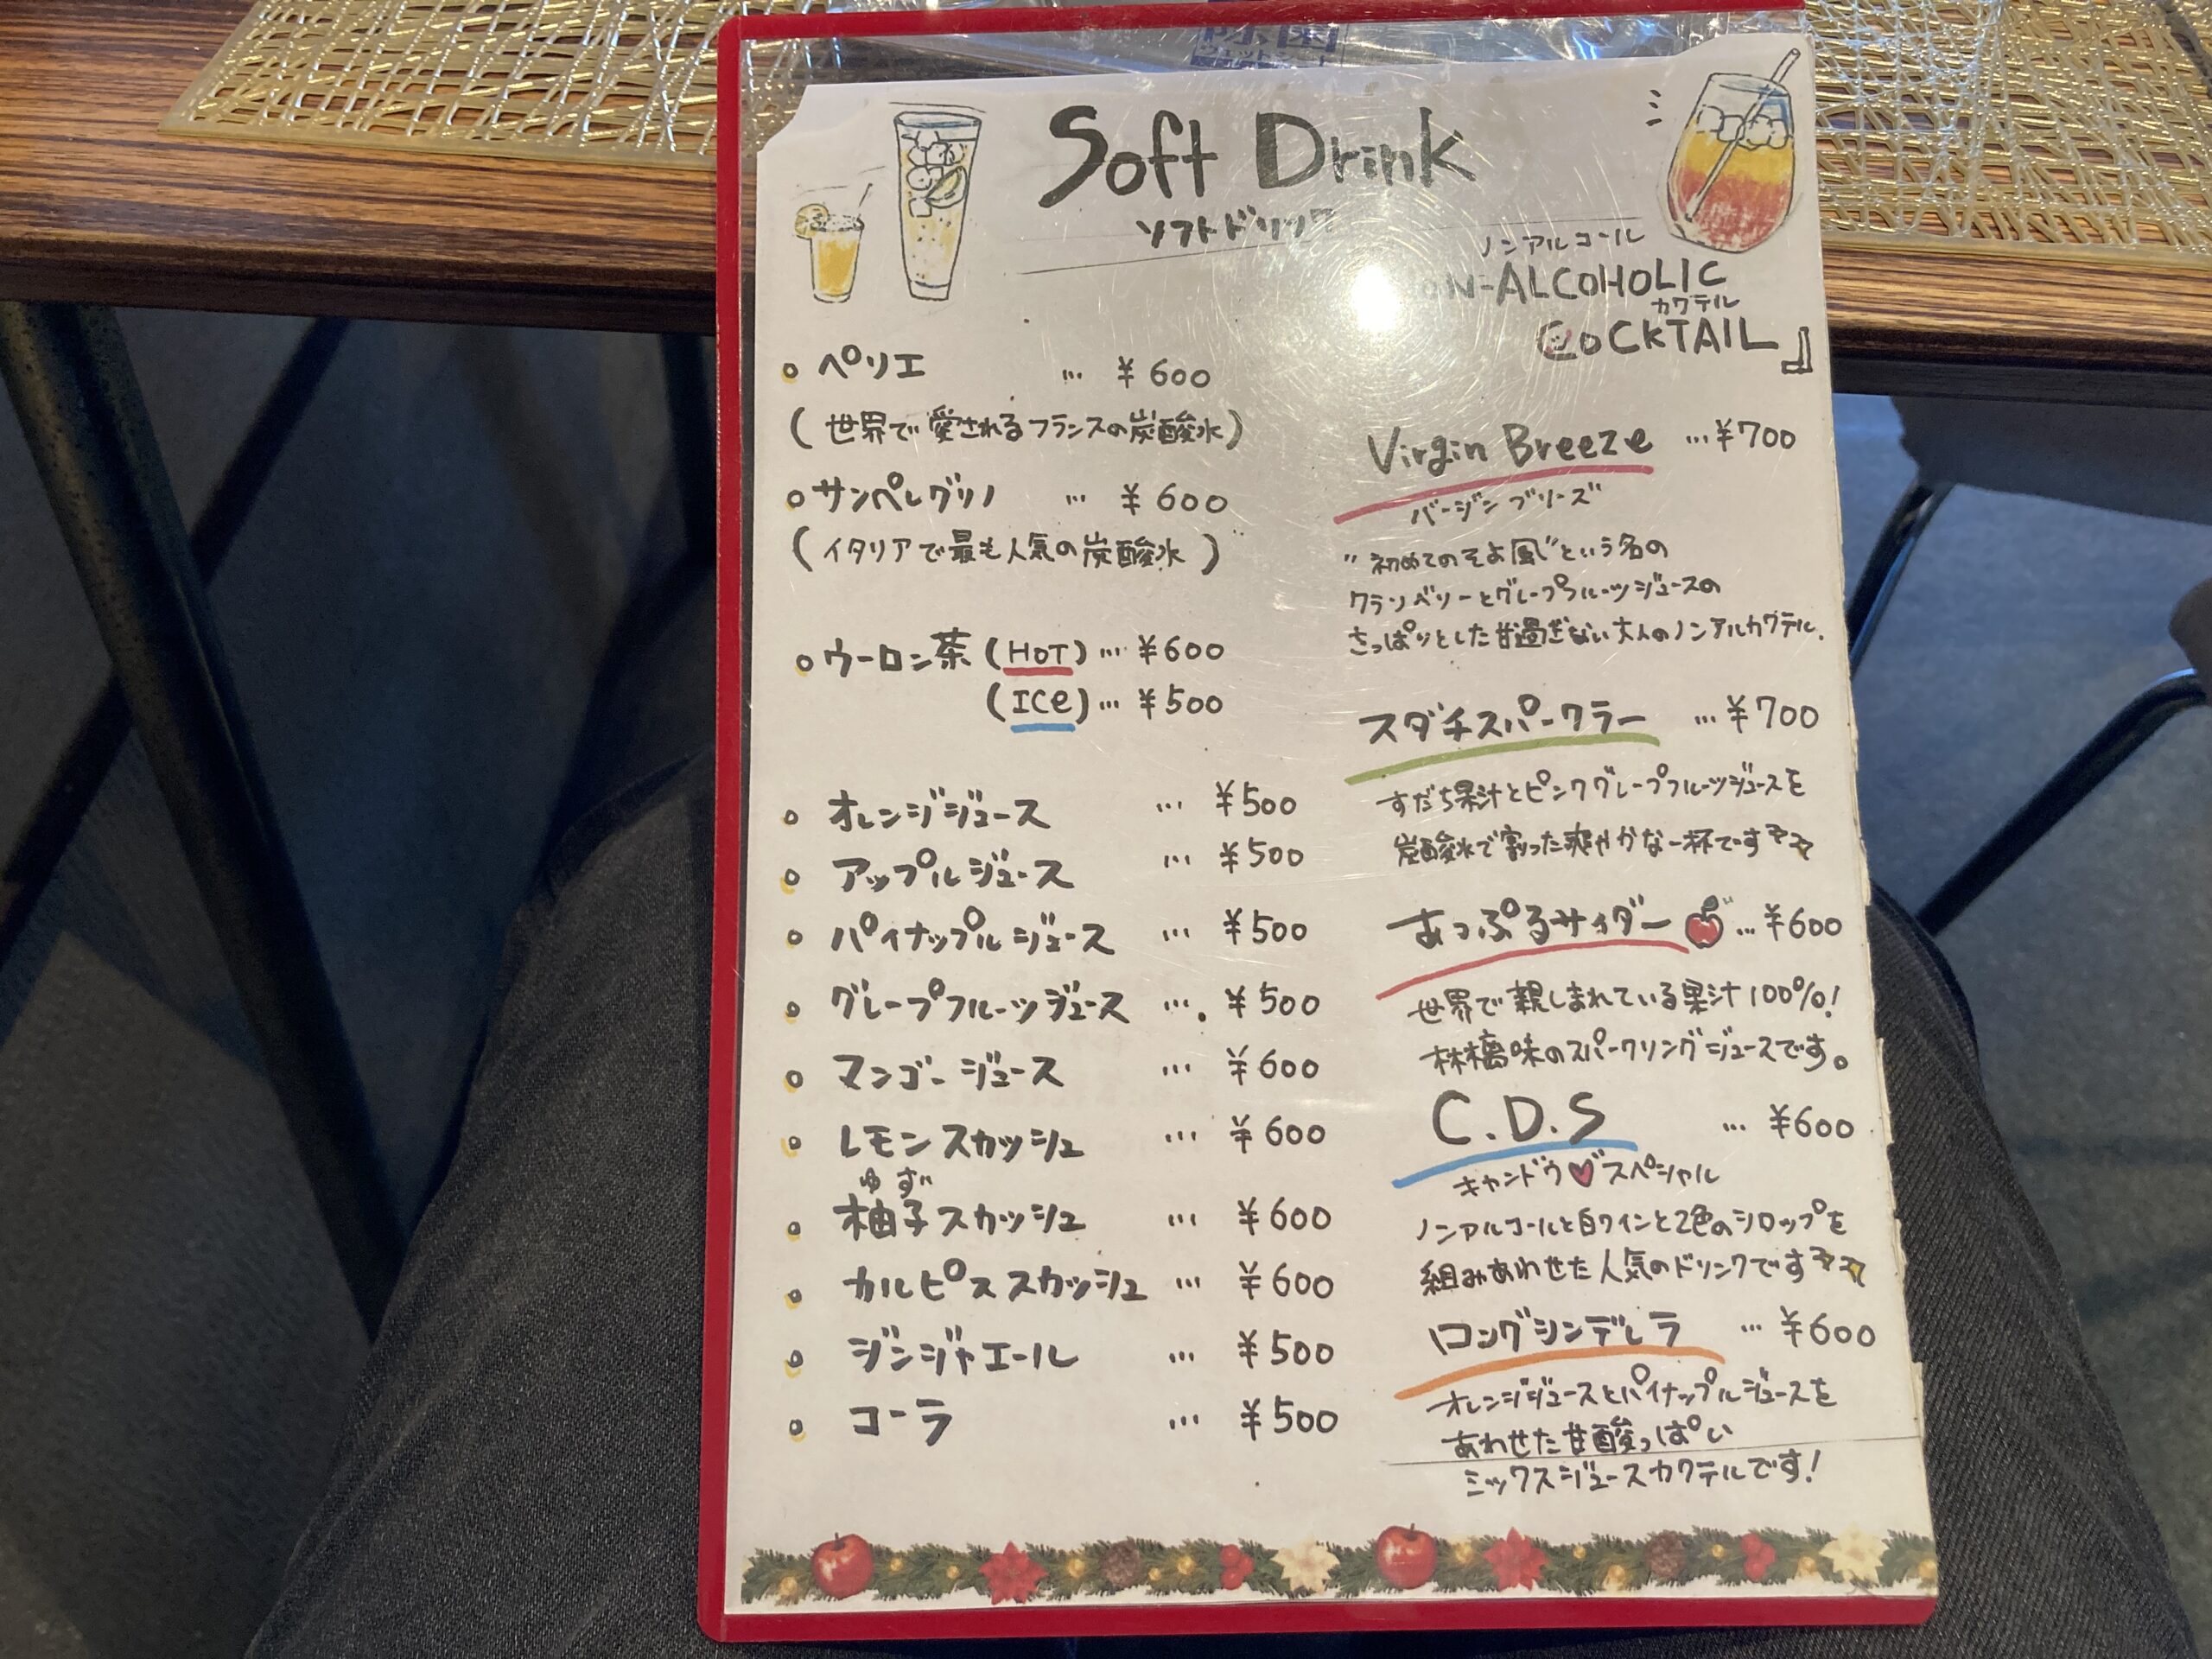 Soft Drink
ソフトドリンク
ペリエ … ¥600
(世界で愛されるフランスの炭酸水)
サンペレグリノ … ¥600
(イタリアで最も人気の炭酸水)
ウーロン茶 (HOT) … ¥600
(ICE) … ¥500
オレンジジュース … ¥500
アップルジュース … ¥500
パイナップルジュース … ¥500
グレープフルーツジュース … ¥500
マンゴージュース … ¥600
レモンスカッシュ … ¥600
ゆず
柚子スカッシュ … ¥600
カルピススカッシュ … ¥600
ジンジャエール … ¥500
コーラ … ¥500
ノンアルコール
ON-ALCOHOLIC
カクテル
COCKTAIL』
Virgin Breeze … ¥700
バージンブリーズ
"初めてのそよ風"という名の
クランベリーとグレープフルーツジュースの
さっぱりとした甘過ぎない大人のノンアルカクテル.
スダチスパークラー … ¥700
すだち果汁とピンクグレープフルーツジュースを
炭酸水で割った爽やかな一杯です
あっぷるサイダー … ¥600
世界で親しまれている果汁100%!
林檎味のスパークリングジュースです。
C.D.S … ¥600
キャンドウ♥スペシャル
ノンアルコールと白ワインと2色のシロップを
組みあわせた人気のドリンクです
ロングシンデレラ … ¥600
オレンジジュースとパイナップルジュースを
あわせた甘酸っぱい
ミックスジュースカクテルです!